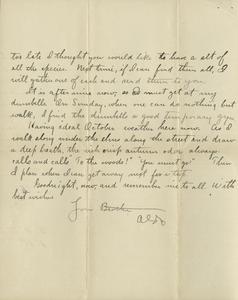 too late I thought you would like to have a set of
all the species. Next time, if I can find them all, I
will gather one of each and send them to you.
It is after nine now, so I must get at my
dumbbells. On Sunday, when one can do nothing but
walk, I find the dumbbells a good temporary
Having ideal October weather here now. As I
walk along under the elms along the street and draw
a deep breath, the rich crisp autumn odor always
calls and calls "To the woods!" "You must go" Then
I plan when I can get away next for a trip.
Goodnight, now, and remember me to all. With
best wishes
Your Brother
Aldo